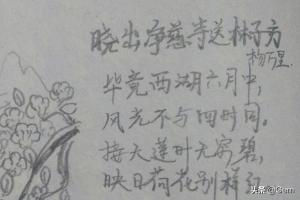 晓出净慈寺送林子方
杨万里
毕竟西湖六月中，
风光不与四时同。
接天莲叶无穷碧，
映日荷花别样红
头条 @Gem